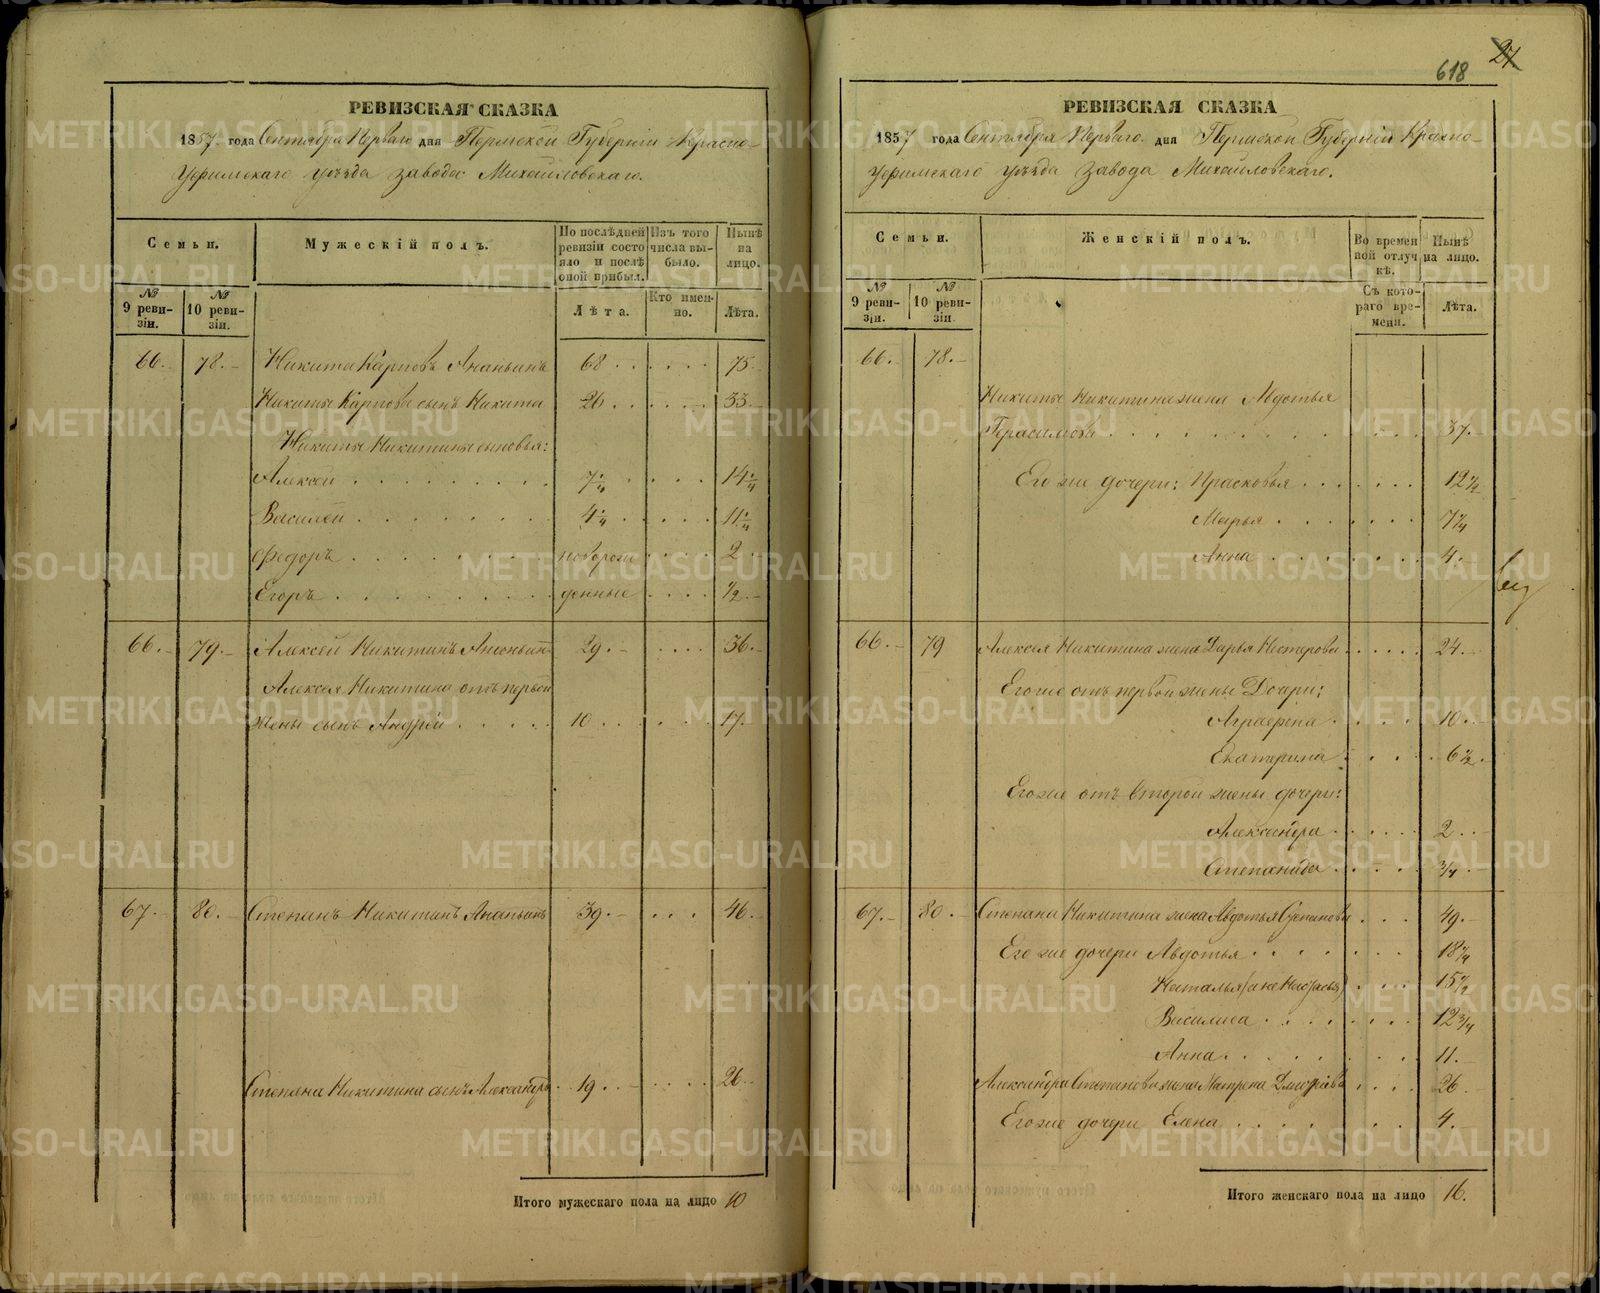 РЕВИЗСКАЯ СКАЗКА
1857 года Сентября Перваго дня Пермской Губерніи Красно-
уфимскаго уѣзда завода Михайловскаго.
Семьи.
Мужескій полъ.
По послѣдней ревизіи состояло и послѣ оной прибыл.
Изъ того числа вы-было.
Нынѣ на лицо.
№ 9 реви-зіи.
№ 10 реви-зіи.
Лѣта.
Кто имен-но.
Лѣта.
66. 78. Никита Карповъ Ананьинъ 68 75
Никиты Карпова сынъ Никита 26 33
Никиты Никитины сыновья:
Алексей 7 1/4 14 1/4
Василей 4 1/4 11 1/4
Федоръ новорож 2
Егоръ денные 1/2
66. 79. Алексей Никитинъ Ананьинъ 29 36
Алексея Никитина отъ первой
жены сынъ Андрей 10 17
67 80. Степанъ Никитинъ Ананьинъ 39 46
Степана Никитина сынъ Александръ 19 26
Итого мужескаго пола на лицо 10
618
27
РЕВИЗСКАЯ СКАЗКА
1857 года Сентября Перваго дня Пермской Губерніи Красно-
уфимскаго уѣзда завода Михайловскаго.
Семьи.
Женскій полъ.
Во времен ной отлуч кѣ.
Нынѣ на лицо.
№ 9 реви-зіи.
№ 10 реви-зіи.
Съ кото-раго вре-мени.
Лѣта.
66. 78.
Никиты Никитина жена Авдотья
Герасимова 37
Его же дочери: Прасковья 12 1/2
Марья 7 1/4
Анна 4.
66. 79 Алексея Никитина жена Дарья Нестерова 24
Его же отъ первой жены Дочери:
Аграфена 10
Екатерина 6 1/2
Его же отъ второй жены дочери:
Александра 2
Степанида 3/4
67. 80. Степана Никитина жена Авдотья Степанова 49.
Его же дочери Авдотья 18 1/4
Наталья (а не Настасья) 15 1/2
Василиса 12 3/4
Анна 11.
Александра Степанова жена Матрена Дмитріева 26
Его же дочери Елена 4.
Итого женскаго пола на лицо 16.
METRIKI.GASO-URAL.RU